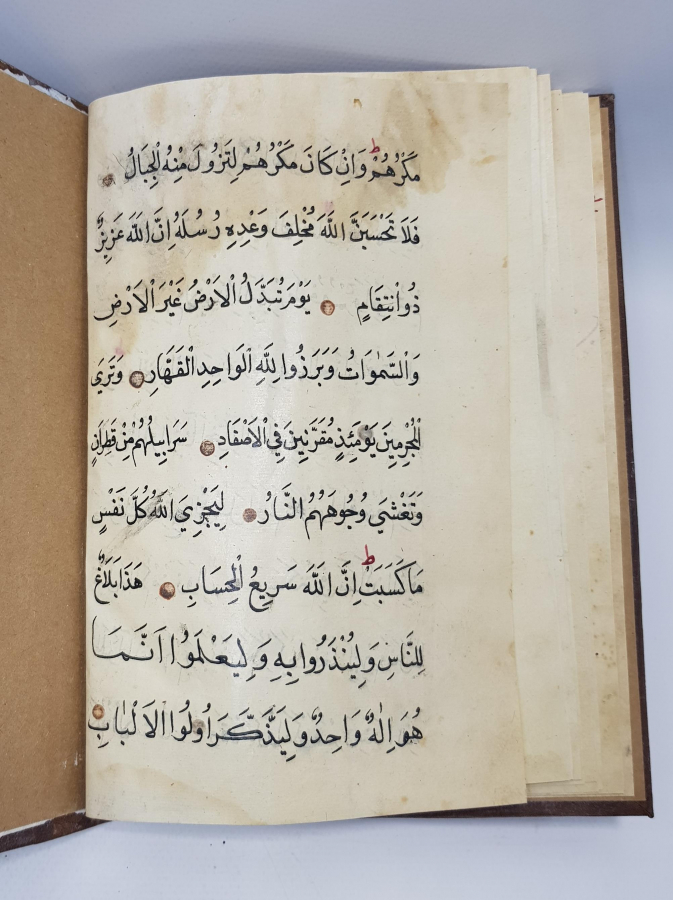 مَكْرُهُمْ ط وَاِنْ كَانَ مَكْرُهُمْ لِتَزُولَ مِنْهُ الْجِبَالُ
فَلَا تَحْسَبَنَّ اللّٰهَ مُخْلِفَ وَعْدِهِ رُسُلَهُ اِنَّ اللّٰهَ عَزِيزٌ
ذُو انْتِقَامٍ يَوْمَ تُبَدَّلُ الْاَرْضُ غَيْرَ الْاَرْضِ
وَالسَّمٰوَاتُ وَبَرَزُوا لِلّٰهِ الْوَاحِدِ الْقَهَّارِ وَتَرَي
الْمُجْرِمِينَ يَوْمَئِذٍ مُقَرَّنِينَ فِي الْاَصْفَادِ سَرَابِيلُهُمْ مِنْ قَطِرَانٍ
وَتَغْشَي وُجُوهَهُمُ النَّارُ لِيَجْزِيَ اللّٰهُ كُلَّ نَفْسٍ
مَا كَسَبَتْ ط اِنَّ اللّٰهَ سَرِيعُ الْحِسَابِ هَذَا بَلَاغٌ
لِلنَّاسِ وَلِيُنْذَرُوا بِهِ وَلِيَعْلَمُوا اَنَّمَا
هُوَ اِلٰهٌ وَاحِدٌ وَلِيَذَّكَّرَ اُولُوا الْاَلْبَابِ